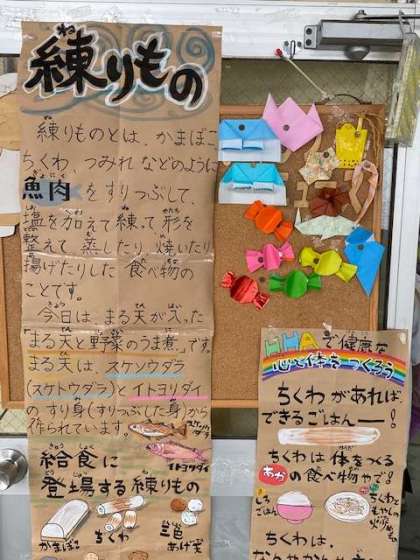 練りもの
練りものとは、かまぼこ
ちくわ、つみれなどのように
魚肉をすりつぶして、
塩を加えて練って形を
整えて蒸したり、焼いたり
揚げたりした食べ物の
ことです。
今日は、まる天が入った
「まる天と野菜のうま煮」です。
まる天は、スケソウダラ
(スケトウダラ)とイトヨリダイ
のすり身(すりつぶした身)から
作られています。
スケソウダラ
イトヨリダイ
給食に
登場する練りもの
かまぼこ
ちくわ
で健康な
心と体をつくろう
ちくわがあれば、
できるごはんー!
ちくわは体をつくる
あかの食べ物やで!
しろごはん
ちくわは、